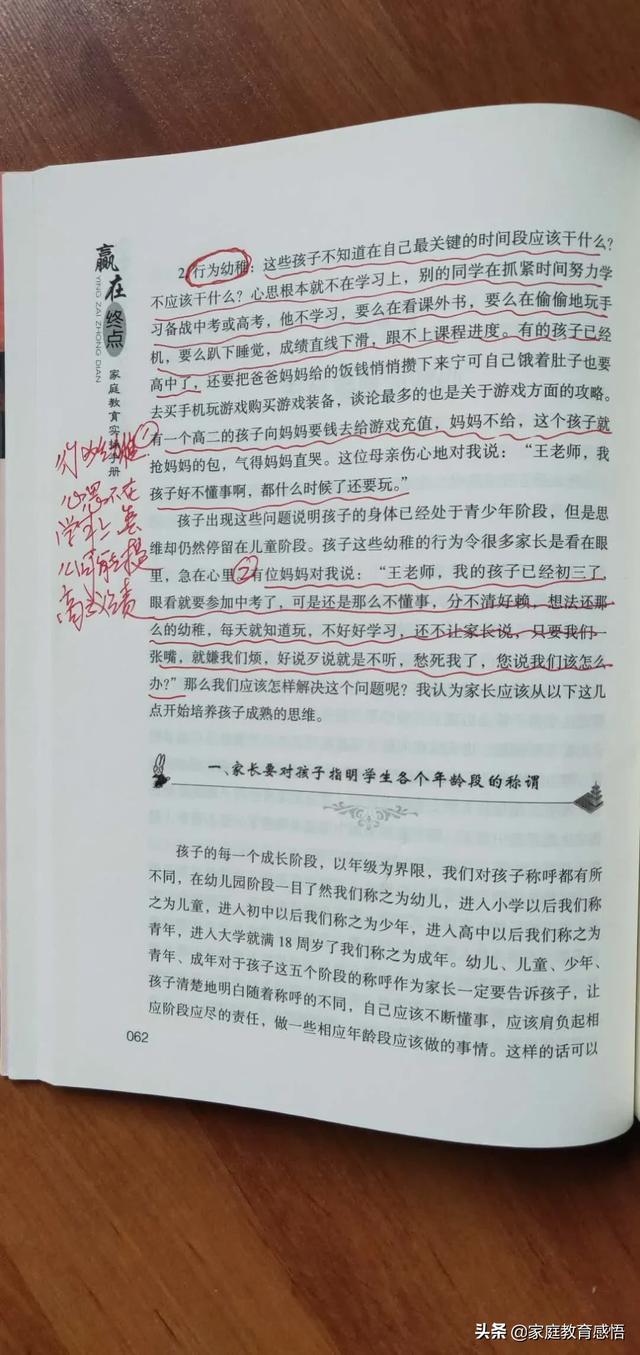 赢在终点
YING ZAI ZHONG DIAN
家庭教育实
册
2.行为幼稚：这些孩子不知道在自己最关键的时间段应该干什么？
不应该干什么？心思根本就不在学习上，别的同学在抓紧时间努力学
习备战中考或高考，他不学习，要么在看课外书，要么在偷偷地玩手
机，要么趴下睡觉，成绩直线下滑，跟不上课程进度。有的孩子已经
高中了，还要把爸爸妈妈给的饭钱悄悄攒下来宁可自己饿着肚子也要
去买手机玩游戏购买游戏装备，谈论最多的也是关于游戏方面的攻略。
有一个高二的孩子向妈妈要钱去给游戏充值，妈妈不给，这个孩子就
抢妈妈的包，气得妈妈直哭。这位母亲伤心地对我说：“王老师，我
孩子好不懂事啊，都什么时候了还要玩。”
孩子出现这些问题说明孩子的身体已经处于青少年阶段，但是思
维却仍然停留在儿童阶段。孩子这些幼稚的行为令很多家长是看在眼
里，急在心里②有位妈妈对我说：“王老师，我的孩子已经初三了，
眼看就要参加中考了，可是还是那么不懂事，分不清好赖，想法还那
么的幼稚，每天就知道玩，不好好学习，还不让家长说，只要我们一
张嘴，就嫌我们烦，好说歹说就是不听，愁死我了，您说我们该怎么
办？”那么我们应该怎样解决这个问题呢？我认为家长应该从以下这几
点开始培养孩子成熟的思维。
①
行为幼稚
心思不在
学生上
高
一、家长要对孩子指明学生各个年龄段的称谓
孩子的每一个成长阶段，以年级为界限，我们对孩子称呼都有所
不同，在幼儿园阶段一目了然我们称之为幼儿，进入小学以后我们称
之为儿童，进入初中以后我们称之为少年，进入高中以后我们称之为
青年，进入大学就满 18 周岁了我们称之为成年。幼儿、儿童、少年、
青年、成年对于孩子这五个阶段的称呼作为家长一定要告诉孩子，让
孩子清楚地明白随着称呼的不同，自己应该不断懂事，应该肩负起相
应阶段应尽的责任，做一些相应年龄段应该做的事情。这样的话可以
062
头条 @家庭教育感悟